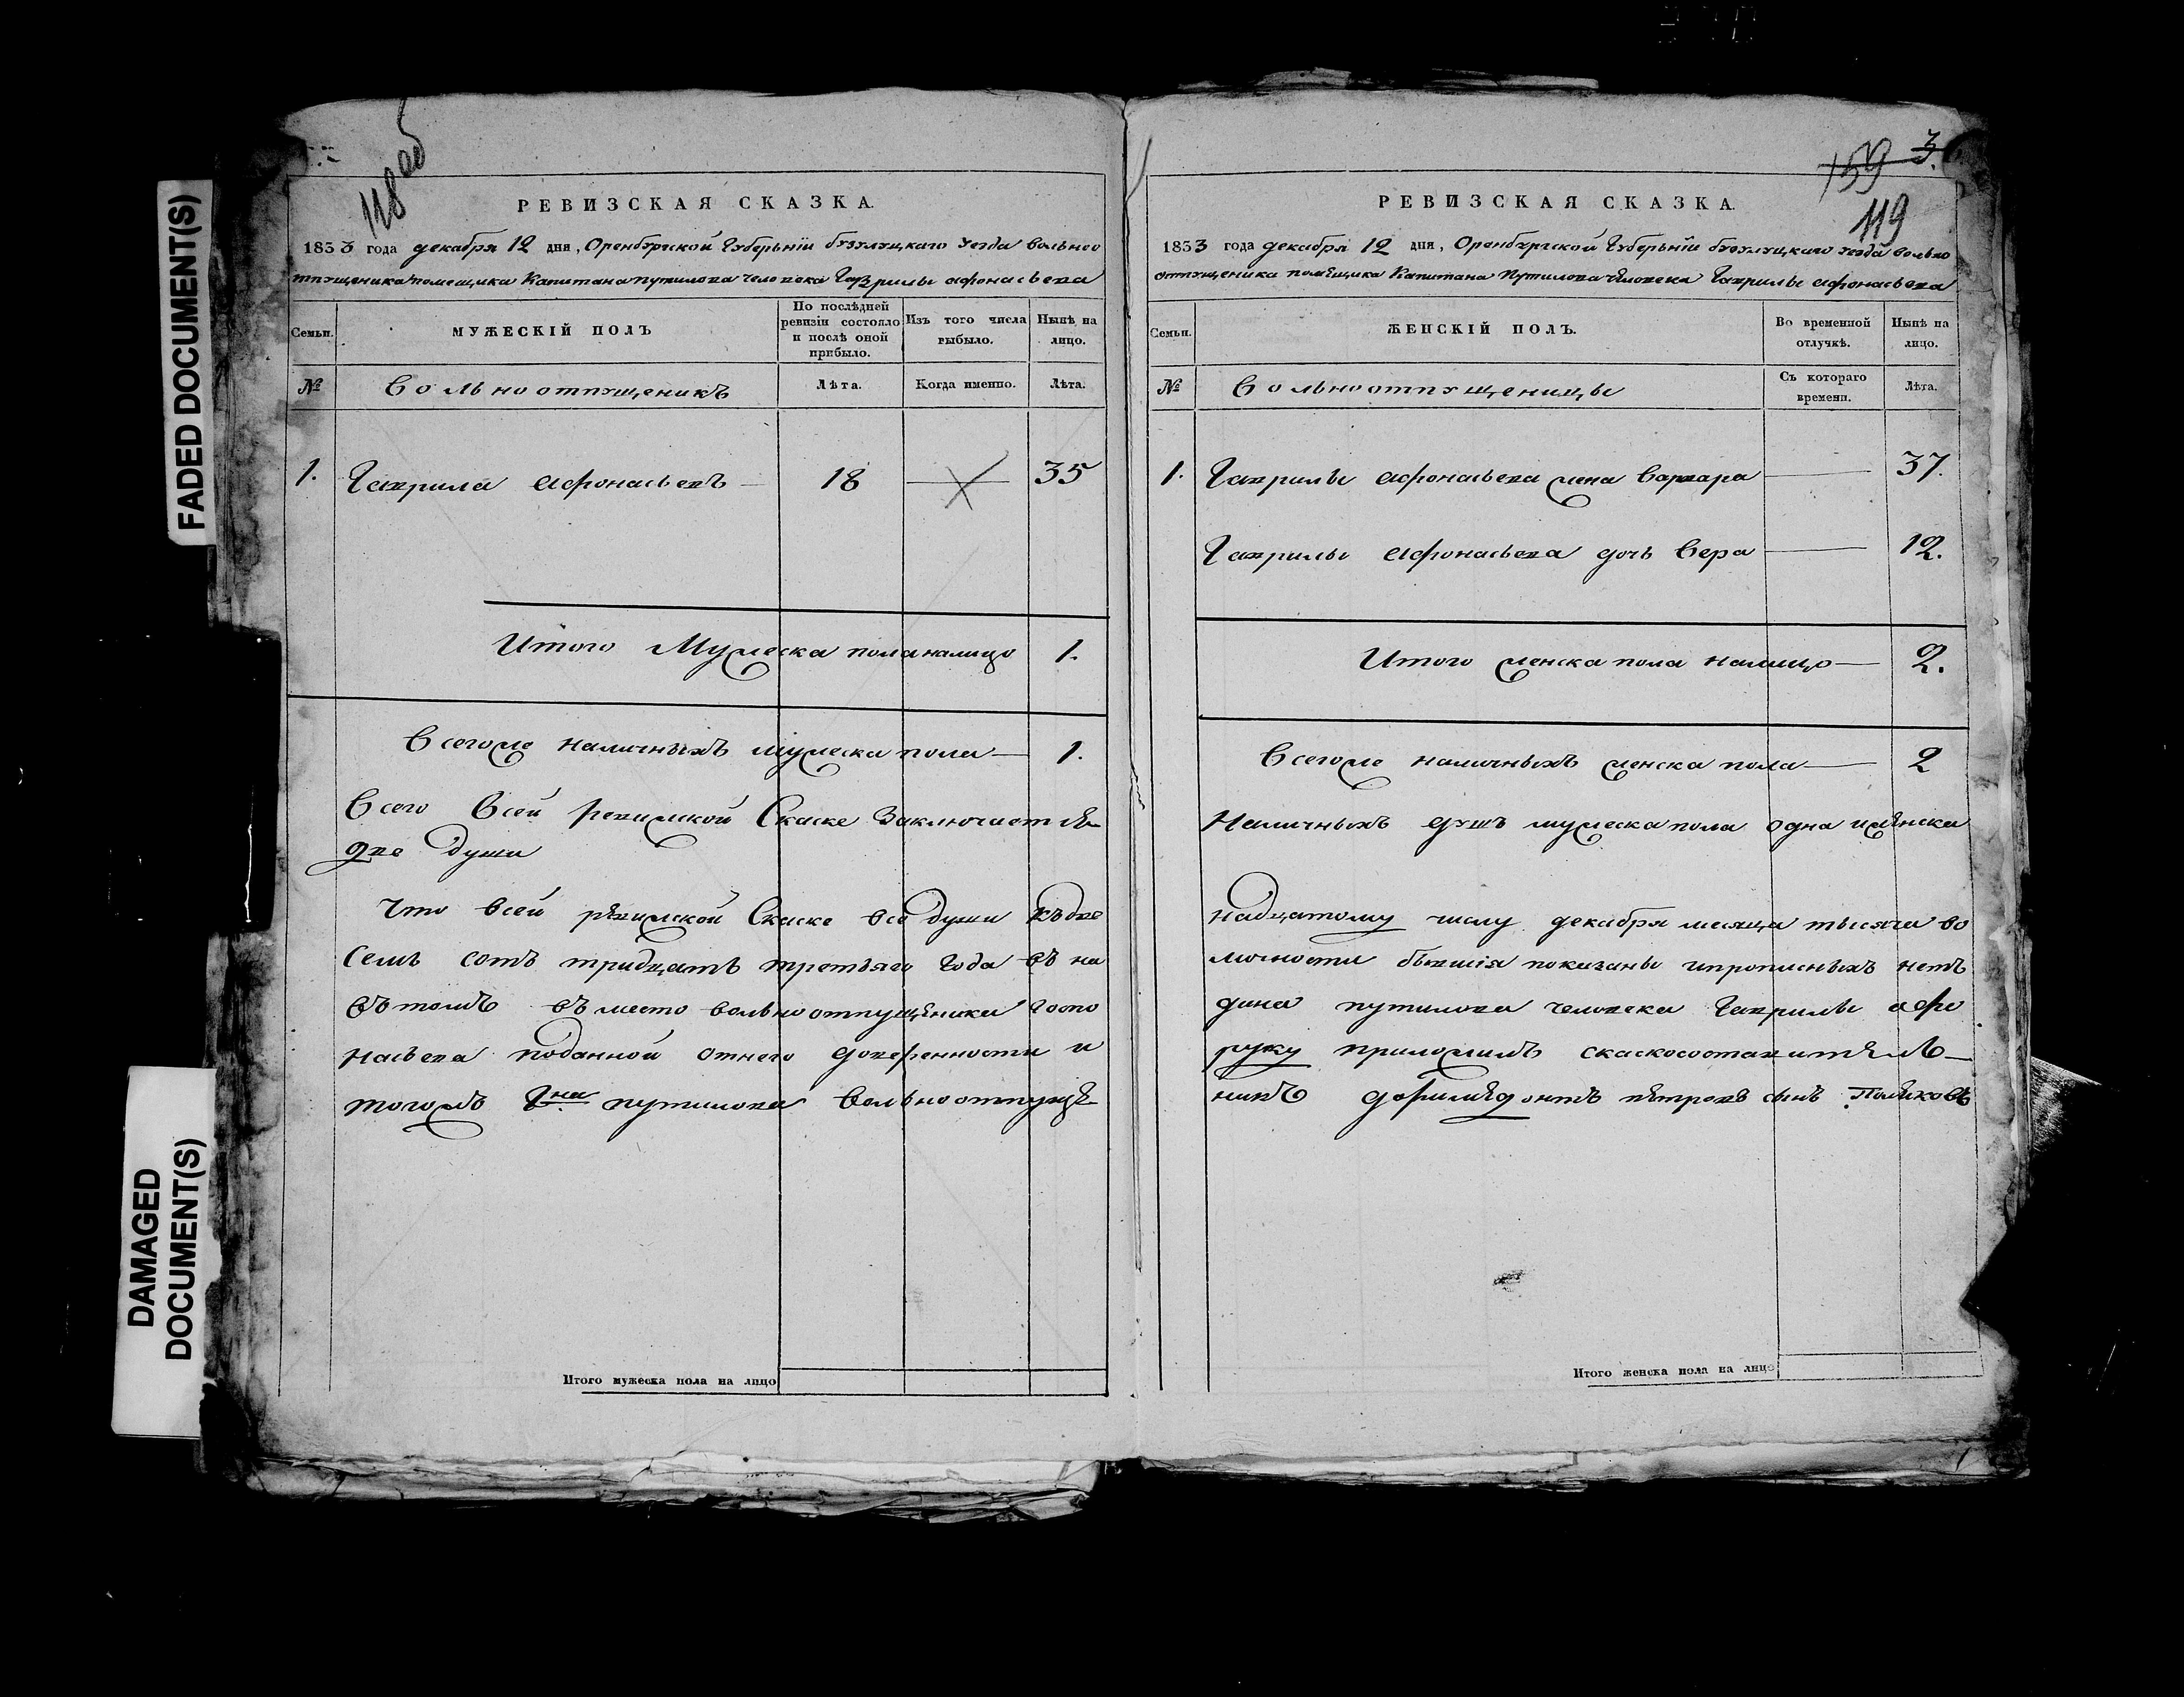 FADED DOCUMENT(S)
DAMAGED
DOCUMENT(S)
118 об
РЕВИЗСКАЯ СКАЗКА.
1833 года декабря 12 дня, Оренбургской Губернїи бузулуцкаго уезда вольно
отпущеника помещика Капитана путилова человека Гаврилы афонасьева
Семьи.
МУЖЕСКІЙ ПОЛЪ
По послѣдней ревизіи состояло и послѣ оной прибыло.
Изъ того числа выбыло.
Нынѣ на лицо.
№
Вольноотпущеникъ
Лѣта.
Когда именно.
Лѣта.
1. Гаврила Афонасьевъ — 18 — 35
Итого Мужеска пола налицо 1.
Всегоже наличныхъ мужеска пола — 1.
Всего Всей ревижской Скаске Заключается
две души
Что всей ревижской Скаске все души къ две
Семь сотъ тридцать третьяго Года въ на
въ томъ въ место вольноотпущеника госпо
насьева поданной отнего доверенности и
тогожъ Гна путилова Вольноотпуще
Итого мужеска пола на лицо
159 3.
119
РЕВИЗСКАЯ СКАЗКА.
1833 года декабря 12 дня, Оренбургской Губернїи бузулуцкаго уезда вольно
отпущеника помещика Капитана Путилова человека Гаврилы афонасьева
Семьи.
ЖЕНСКІЙ ПОЛЪ.
Во временной отлучкѣ.
Нынѣ на лицо.
№
Вольноотпущеницы
Съ котораго времени.
Лѣта.
1. Гаврилы Афонасьева жена Варвара — 37.
Гаврилы Афонасьева дочь Вера — 12.
Итого женска пола налицо — 2.
Всегоже наличныхъ женска пола — 2
Наличныхъ душъ мужеска пола одна и женска
надцатому числу декабря месяца тысяча во
личности бывшія показаны и прописныхъ нетъ
дина путилова человека Гаврилы афо
руку приложилъ скаскосоставитель
никъ дофилидонтъ петровъ сынъ Поляковъ
Итого женска пола на лицо